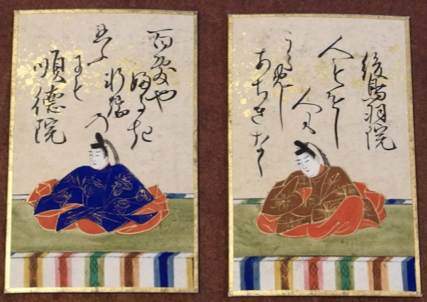 後鳥羽院
人もをし
人も
うらめし
あちきなく
百敷や
ふるき
軒端の
順徳院